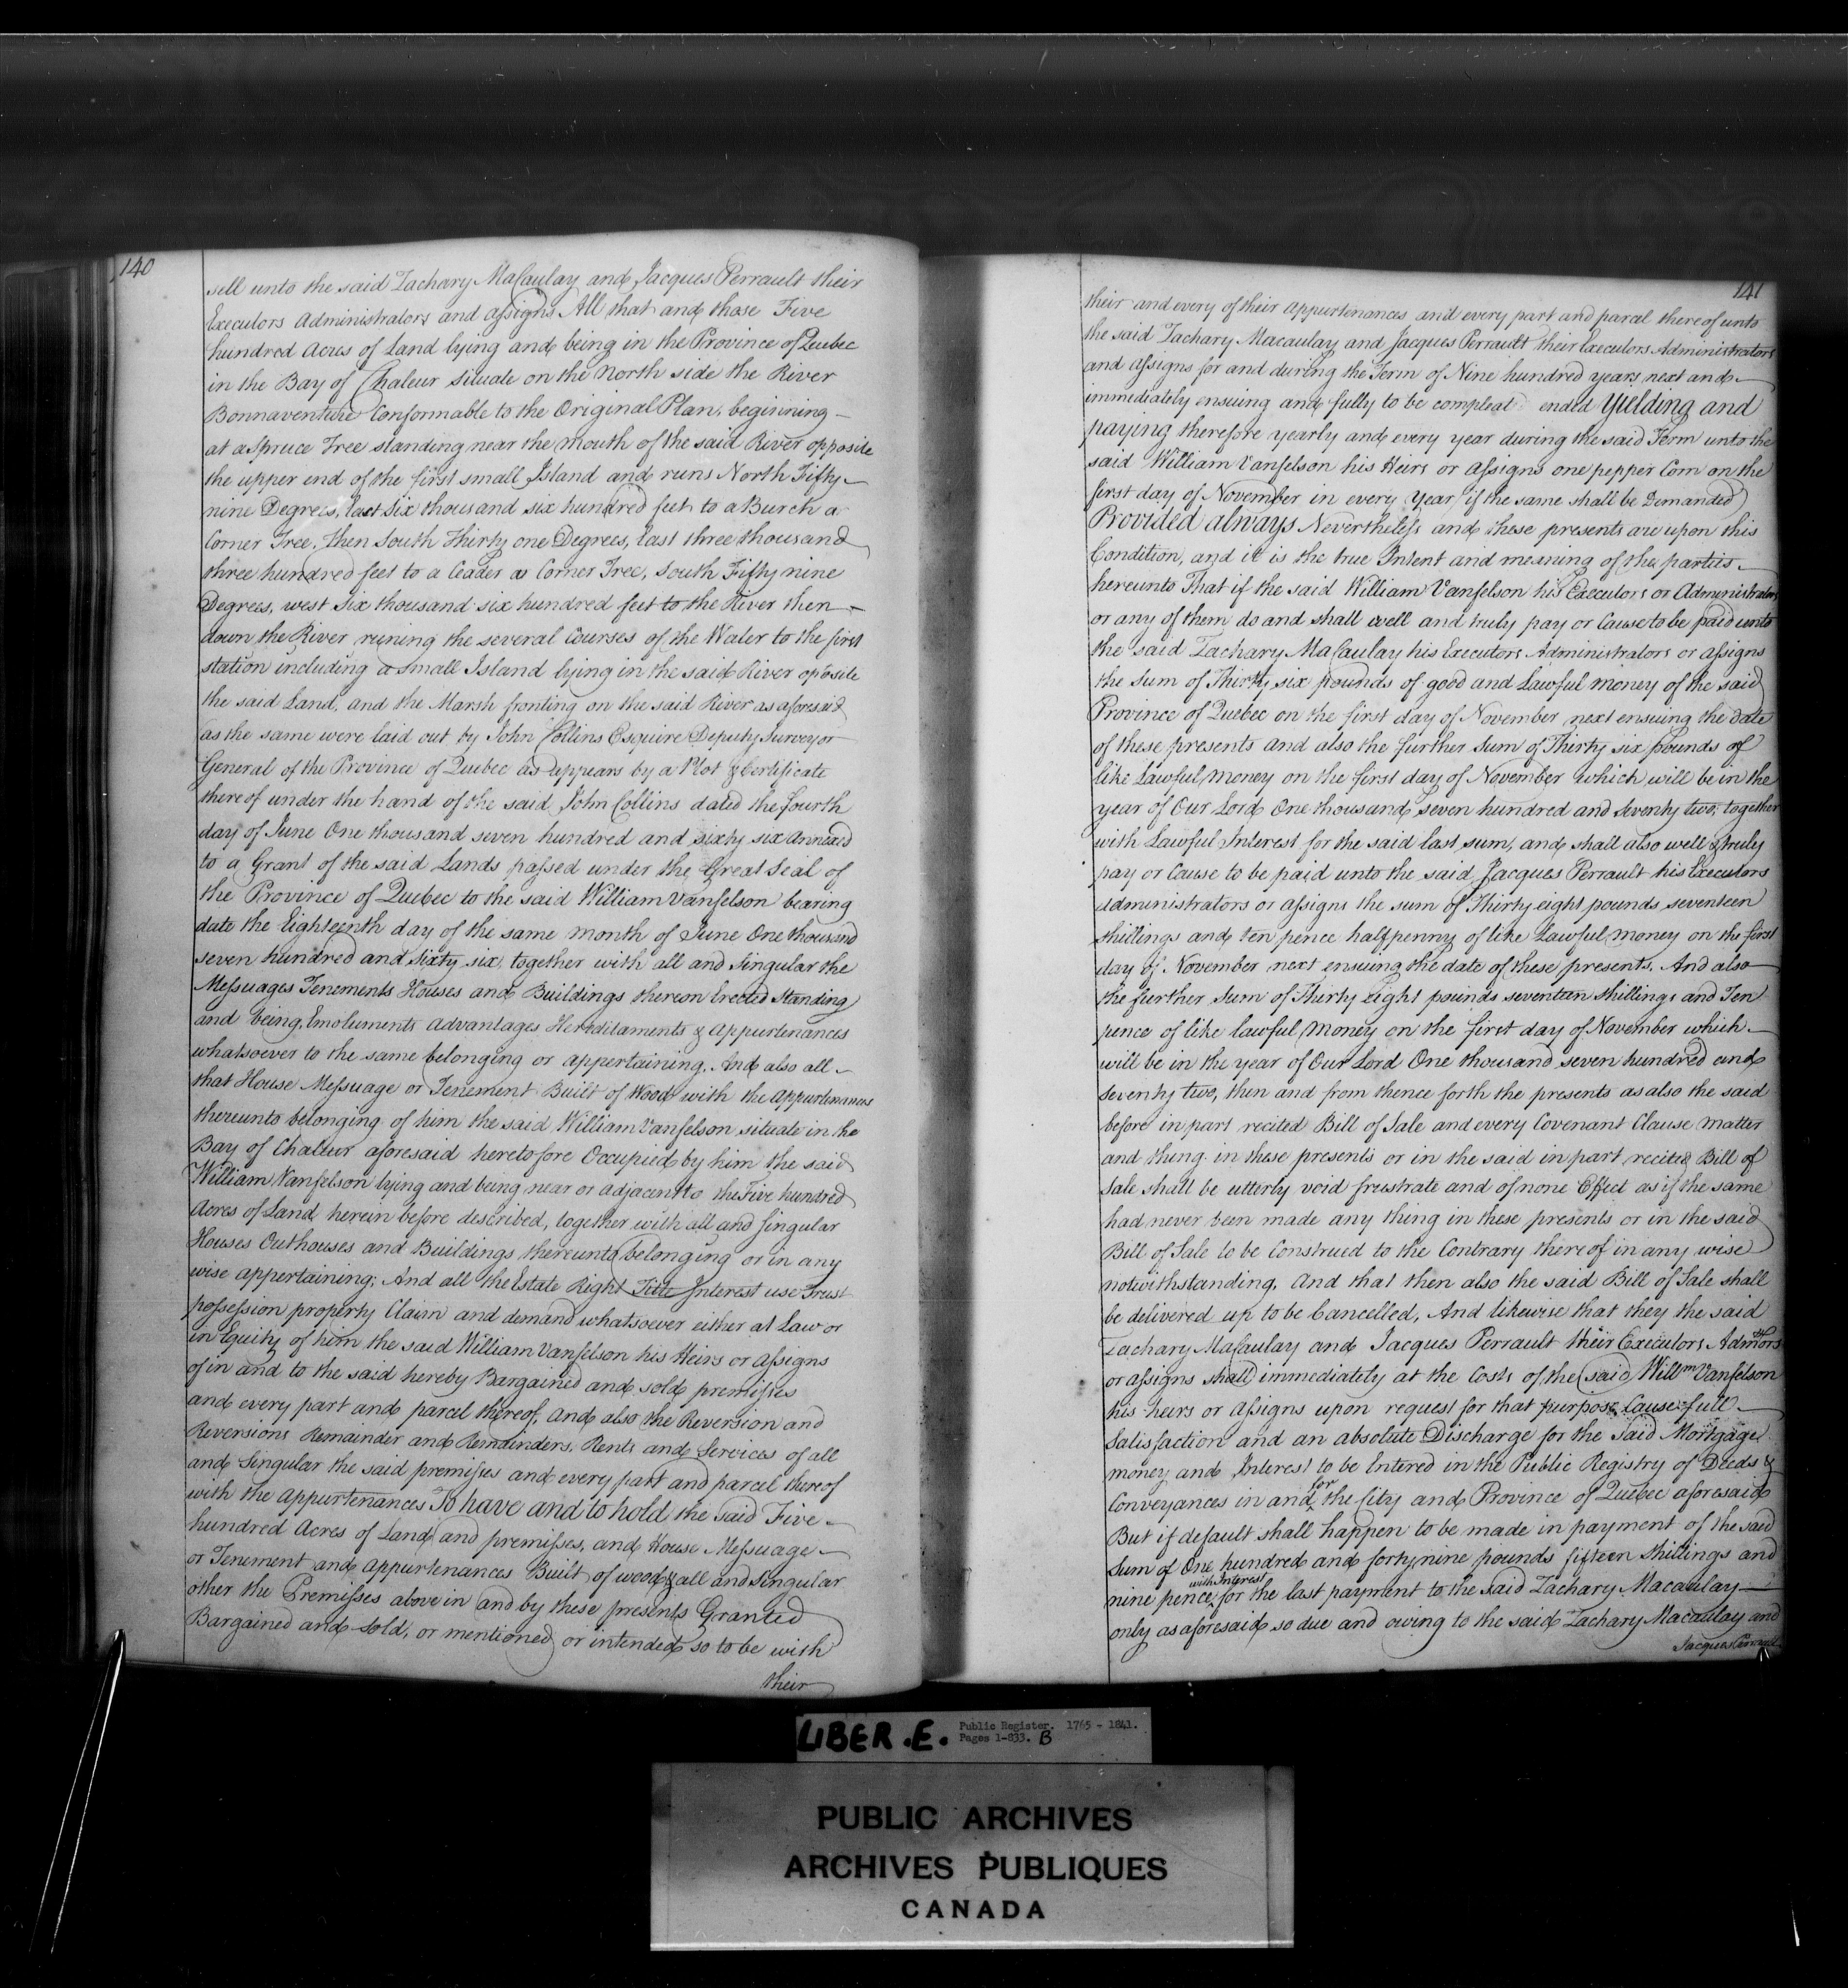 140
sell unto the said Zachary Macaulay and Jacques Perrault their
Executors Administrators and assigns All that and those Five
hundred Acres of Land lying and being in the Province of Quebec
in the Bay of Chaleur Situate on the North side the River
Bonnaventure Conformable to the Original Plan, beginning
at a Spruce Tree standing near the mouth of the said River opposite
the upper end of the first small Island and runs North Fifty
nine Degrees, East Six thousand six hundred feet to a Burch a
Corner Tree, then South Thirty one Degrees, East three thousand
three hundred feet to a Ceader a Corner Tree, South Fifty nine
Degrees, west Six thousand six hundred feet to the River then
down the River runing the several Courses of the Water to the first
station including a small Island lying in the said River oposite
the said Land, and the Marsh fronting on the said River as aforesaid
as the same were laid out by John Collins Esquire Deputy Surveyor
General of the Province of Quebec as appears by a Plot & Certificate
thereof under the hand of the said John Collins dated the fourth
day of June One thousand seven hundred and sixty six annexed
to a Grant of the said Lands passed under the Great Seal of
the Province of Quebec to the said William Vanfelson bearing
date the Eighteenth day of the same month of June One thousand
seven hundred and Sixty six, together with all and singular the
Messuages Tenements Houses and Buildings thereon Erected Standing
and being, Emoluments Advantages Hereditaments & Appurtenances
whatsoever to the same belonging or appertaining, And also all
that House Messuage or Tenement Built of Wood with the appurtenances
thereunto belonging of him the said William Vanfelson situate in the
Bay of Chaleur aforesaid heretofore Occupied by him the said
William Vanfelson lying and being near or adjacent to the Five hundred
Acres of Land herein before described, together with all and singular
Houses Outhouses and Buildings thereunto belonging or in any
wise appertaining; And all the Estate Right Title Interest use Trust
possession property Claim and demand whatsoever either at Law or
in Equity of him the said William Vanfelson his Heirs or Assigns
of in and to the said hereby Bargained and sold premisses
and every part and parcel thereof, And also the Reversion and
Reversions Remainder and Remainders, Rents and Services of all
and Singular the said premisses and every part and parcel thereof
with the appurtenances To have and to hold the said Five
hundred Acres of Land and premisses, and House Messuage
or Tenement and appurtenances Built of wood & all and Singular
other the Premisses above in and by these presents Granted
Bargained and Sold, or mentioned or intended so to be with
their
141
their and every of their appurtenances and every part and parcel thereof unto
the said Zachary Macaulay and Jacques Perrault their Executors Administrators
and Assigns for and during the Term of Nine hundred years next and
immediately ensuing and fully to be compleat ended Yielding and
paying therefore yearly and every year during the said Term unto the
said William Vanfelson his Heirs or Assigns one pepper Corn on the
first day of November in every Year if the same shall be Demanded
Provided always Nevertheless and these presents are upon this
Condition, and it is the true Intent and meaning of the parties
hereunto That if the said William Vanfelson his Executors or Administrators
or any of them do and shall well and truly pay or Cause to be paid unto
the said Zachary Macaulay his Executors Administrators or assigns
the Sum of Thirty six pounds of good and Lawful money of the said
Province of Quebec on the first day of November next ensuing the date
of these presents and also the further Sum of Thirty six pounds of
like Lawful money on the first day of November which will be in the
year of Our Lord One thousand seven hundred and Seventy two, together
with Lawful Interest for the said last sum, and shall also well & truly
pay or Cause to be paid unto the said Jacques Perrault his Executors
administrators or assigns the sum of Thirty eight pounds seventeen
shillings and ten pence halfpenny of like Lawful money on the first
day of November next ensuing the date of these presents, And also
the further Sum of Thirty Eight pounds seventeen shillings and Ten
pence of like lawful money on the first day of November which
will be in the year of Our Lord One thousand seven hundred and
Seventy two, then and from thence forth the presents as also the said
before in part recited Bill of Sale and every Covenant Clause matter
and thing in these presents or in the said in part recited Bill of
Sale shall be utterly void frustrate and of none Effect as if the same
had never been made any thing in these presents or in the said
Bill of Sale to be Construed to the Contrary thereof in any wise
notwithstanding, And that then also the said Bill of Sale shall
be delivered up to be Cancelled, And likewise that they the said
Zachary Macaulay and Jacques Perrault their Executors Admstors
or assigns shall immediately at the Costs of the said Willm Vanfelson
his heirs or Assigns upon request for that purpose, Cause full
Satisfaction and an absolute Discharge for the said Mortgage
money and Interest to be Entered in the Public Registry of Deeds &
Conveyances in and for the City and Province of Quebec aforesaid
But if default shall happen to be made in payment of the said
Sum of One hundred and forty nine pounds fifteen shillings and
nine pence with Interest for the last payment to the said Zachary Macaulay
only as aforesaid so due and owing to the said Zachary Macaulay and
Jacques Perrault
LIBER.E. Public Register. 1765 - 1841.
Pages 1-833. B
PUBLIC ARCHIVES
ARCHIVES PUBLIQUES
CANADA